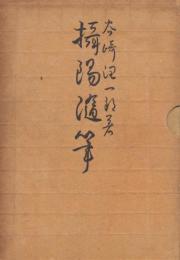 谷崎潤一郎著
攝陽隨筆